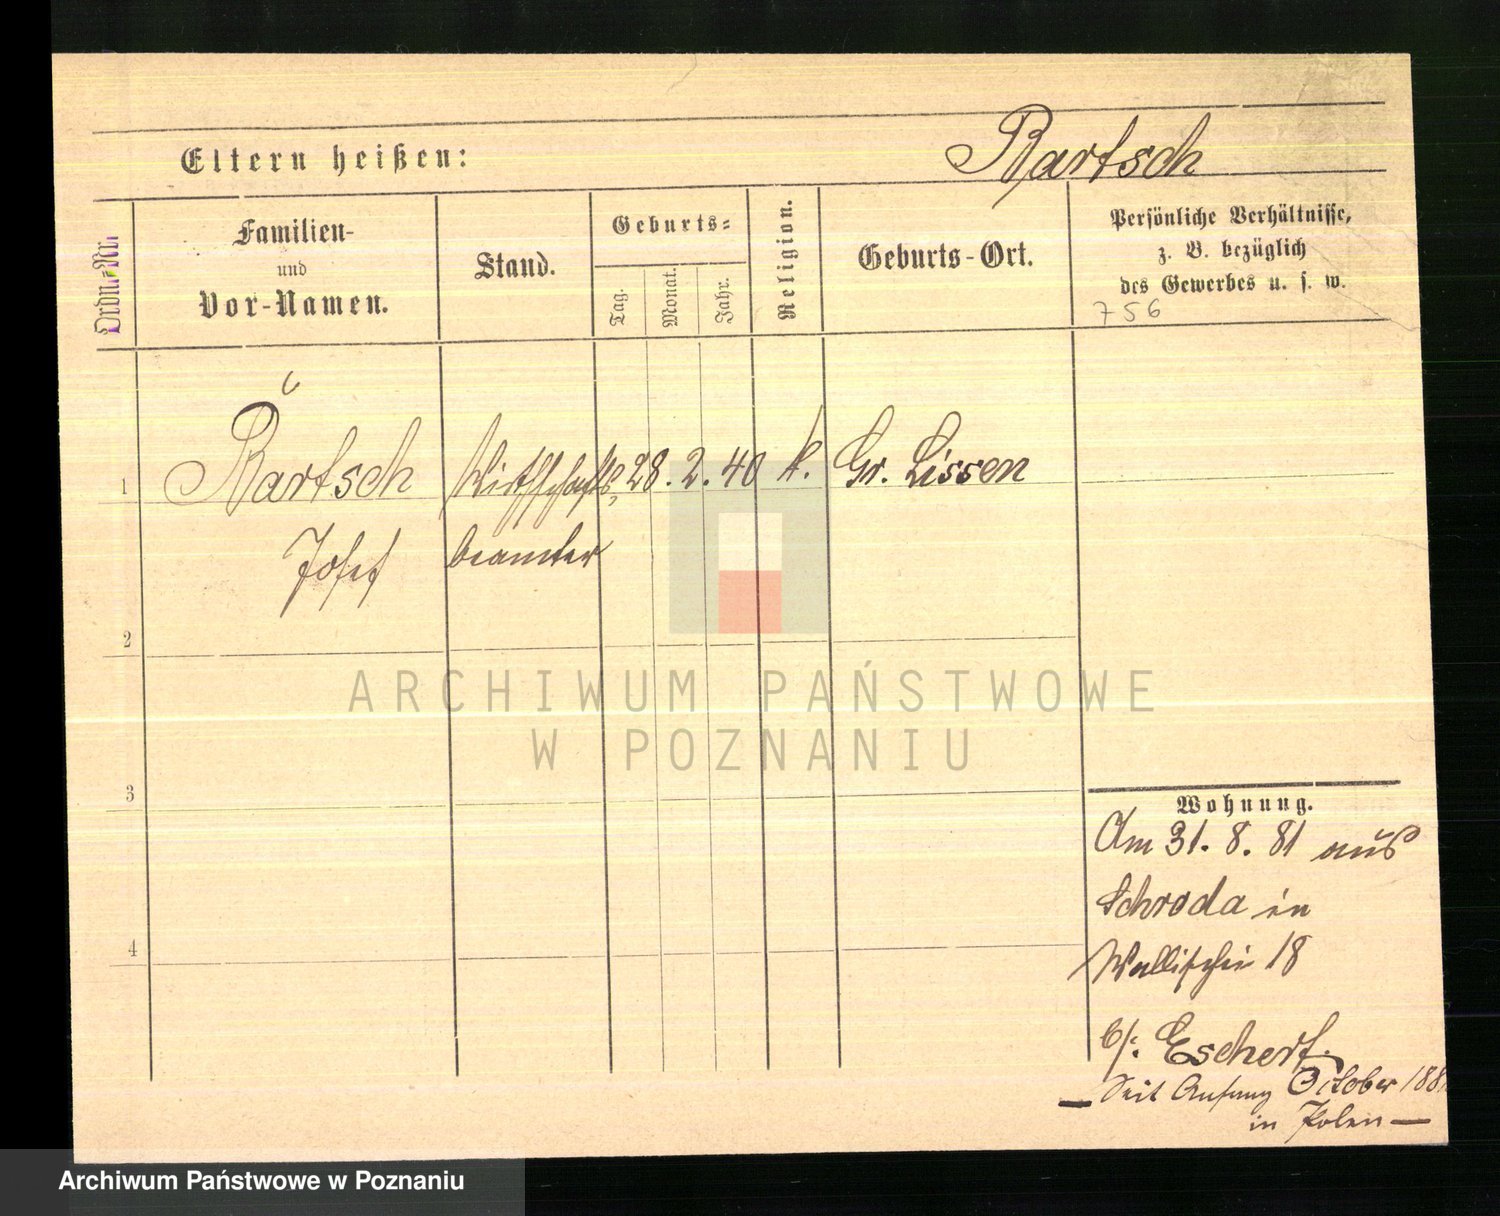 Bartsch
Eltern heißen:
Ordn.-Nr.
Familien-
und
Vor-Namen.
Stand.
Geburts-
Tag.
Monat.
Jahr.
Religion.
Geburts-Ort.
Persönliche Verhältnisse,
z. B. bezüglich
des Gewerbes u. s. w.
756
1 Bartsch Wirthschafts 28. 2. 40 k. Gr. Lissen
Josef beamter
2
3
4
Wohnung.
Am 31. 8. 81 aus
Schroda in
Wallischei 18
b/: Eschert.
— Seit Anfang October 188
in Polen —
ARCHIWUM PAŃSTWOWE
W POZNANIU
Archiwum Państwowe w Poznaniu